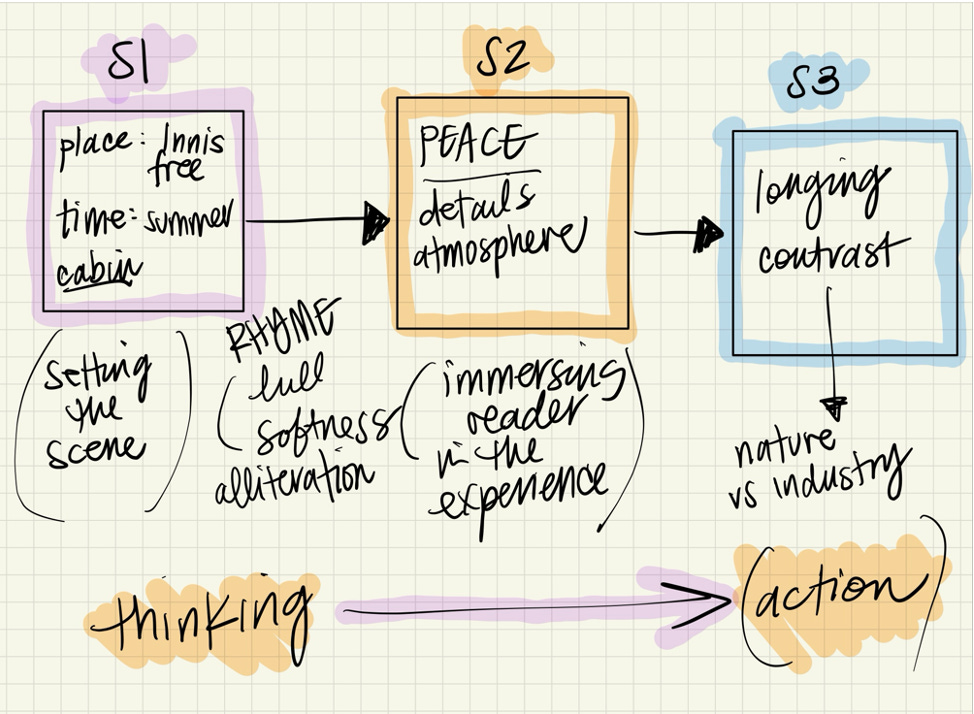 S1
place: Innis
free
time: summer
cabin
S2
PEACE
details
atmosphere
S3
longing
contrast
(setting
the
scene)
RHYME
(lull
softness
alliteration
(immersing
reader
in the
experience)
nature
vs industry
thinking
(action)